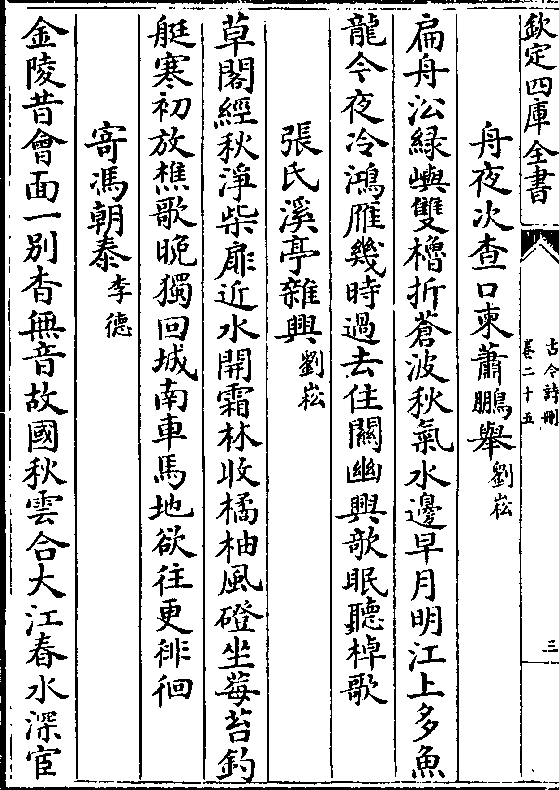 欽定四庫全書
古今詩刪
卷二十五
三
舟夜次查口柬蕭鵬舉劉崧
扁舟㳂緑嶼雙櫓折蒼波秋氣水邊早月明江上多魚
龍今夜冷鴻雁幾時過去住關幽興欹眠聽棹歌
張氏溪亭雜興劉崧
草閣經秋淨柴扉近水開霜林收橘柚風磴坐莓苔釣
艇寒初放樵歌晚獨回城南車馬地欲往更徘徊
寄馮朝泰李德
金陵昔會面一别杳無音故國秋雲合大江春水深宦